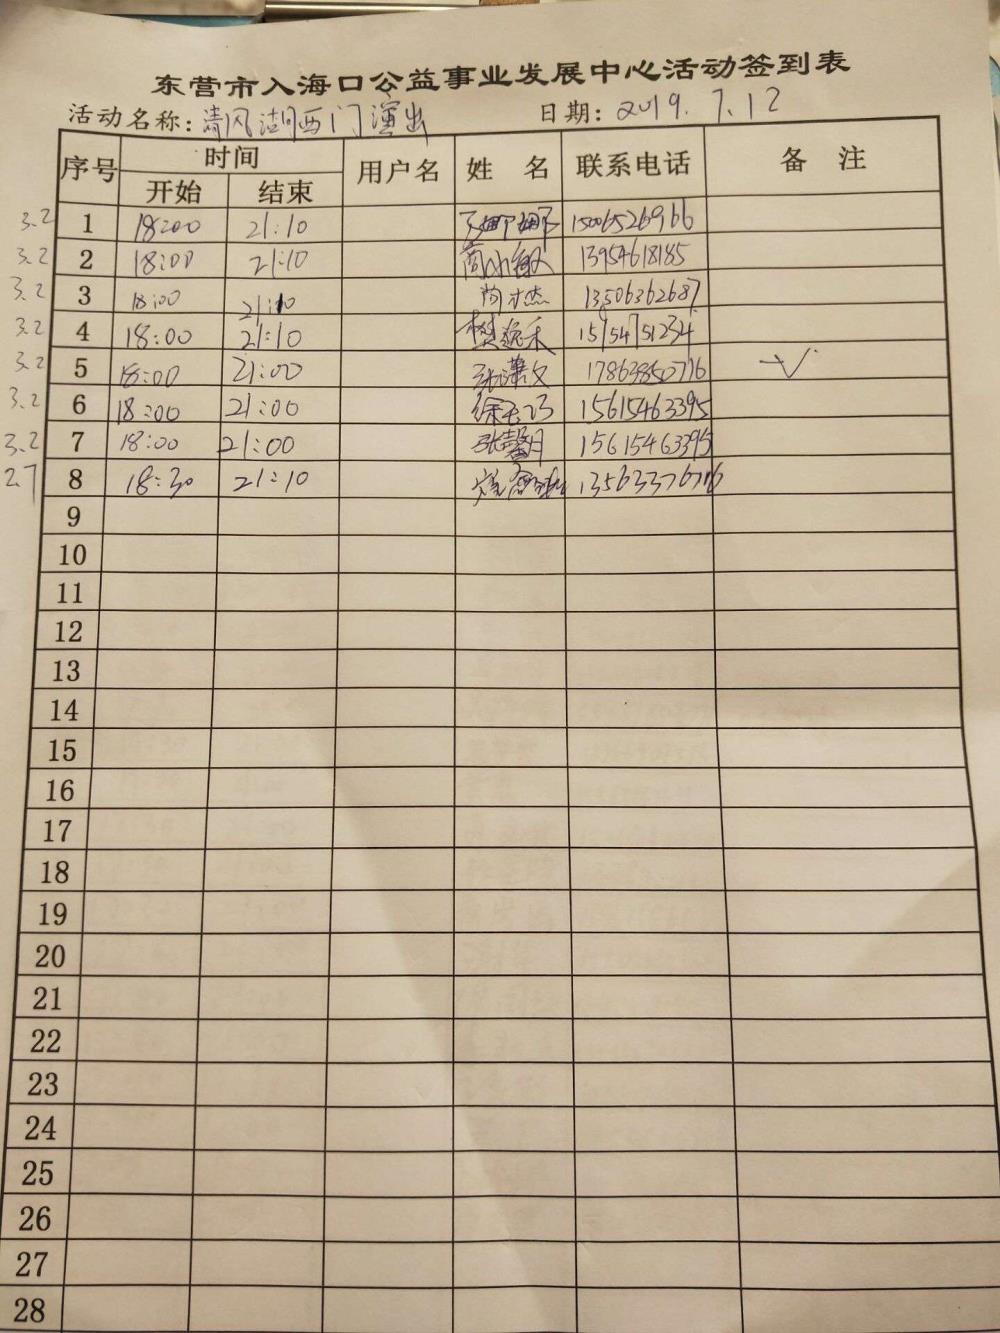 东营市入海口公益事业发展中心活动签到表
活动名称: 清风湖西门演出 日期: 2019. 7. 12
序号 时间 用户名 姓 名 联系电话 备 注
开始 结束
3.2 1 18:00 21:10 15065269966
3.2 2 18:00 21:10 13954618185
3.2 3 18:00 21:10 13506362687
3.2 4 18:00 21:10 樊逸禾 15954751234
3.2 5 18:00 21:00 张潇文 17863850716 √
3.2 6 18:00 21:00 15615463395
3.2 7 18:00 21:00 张馨月 15615463395
2.7 8 18:30 21:10 13563376716
9
10
11
12
13
14
15
16
17
18
19
20
21
22
23
24
25
26
27
28